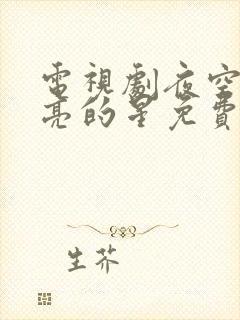 電視劇夜空
亮的星免費
生芥